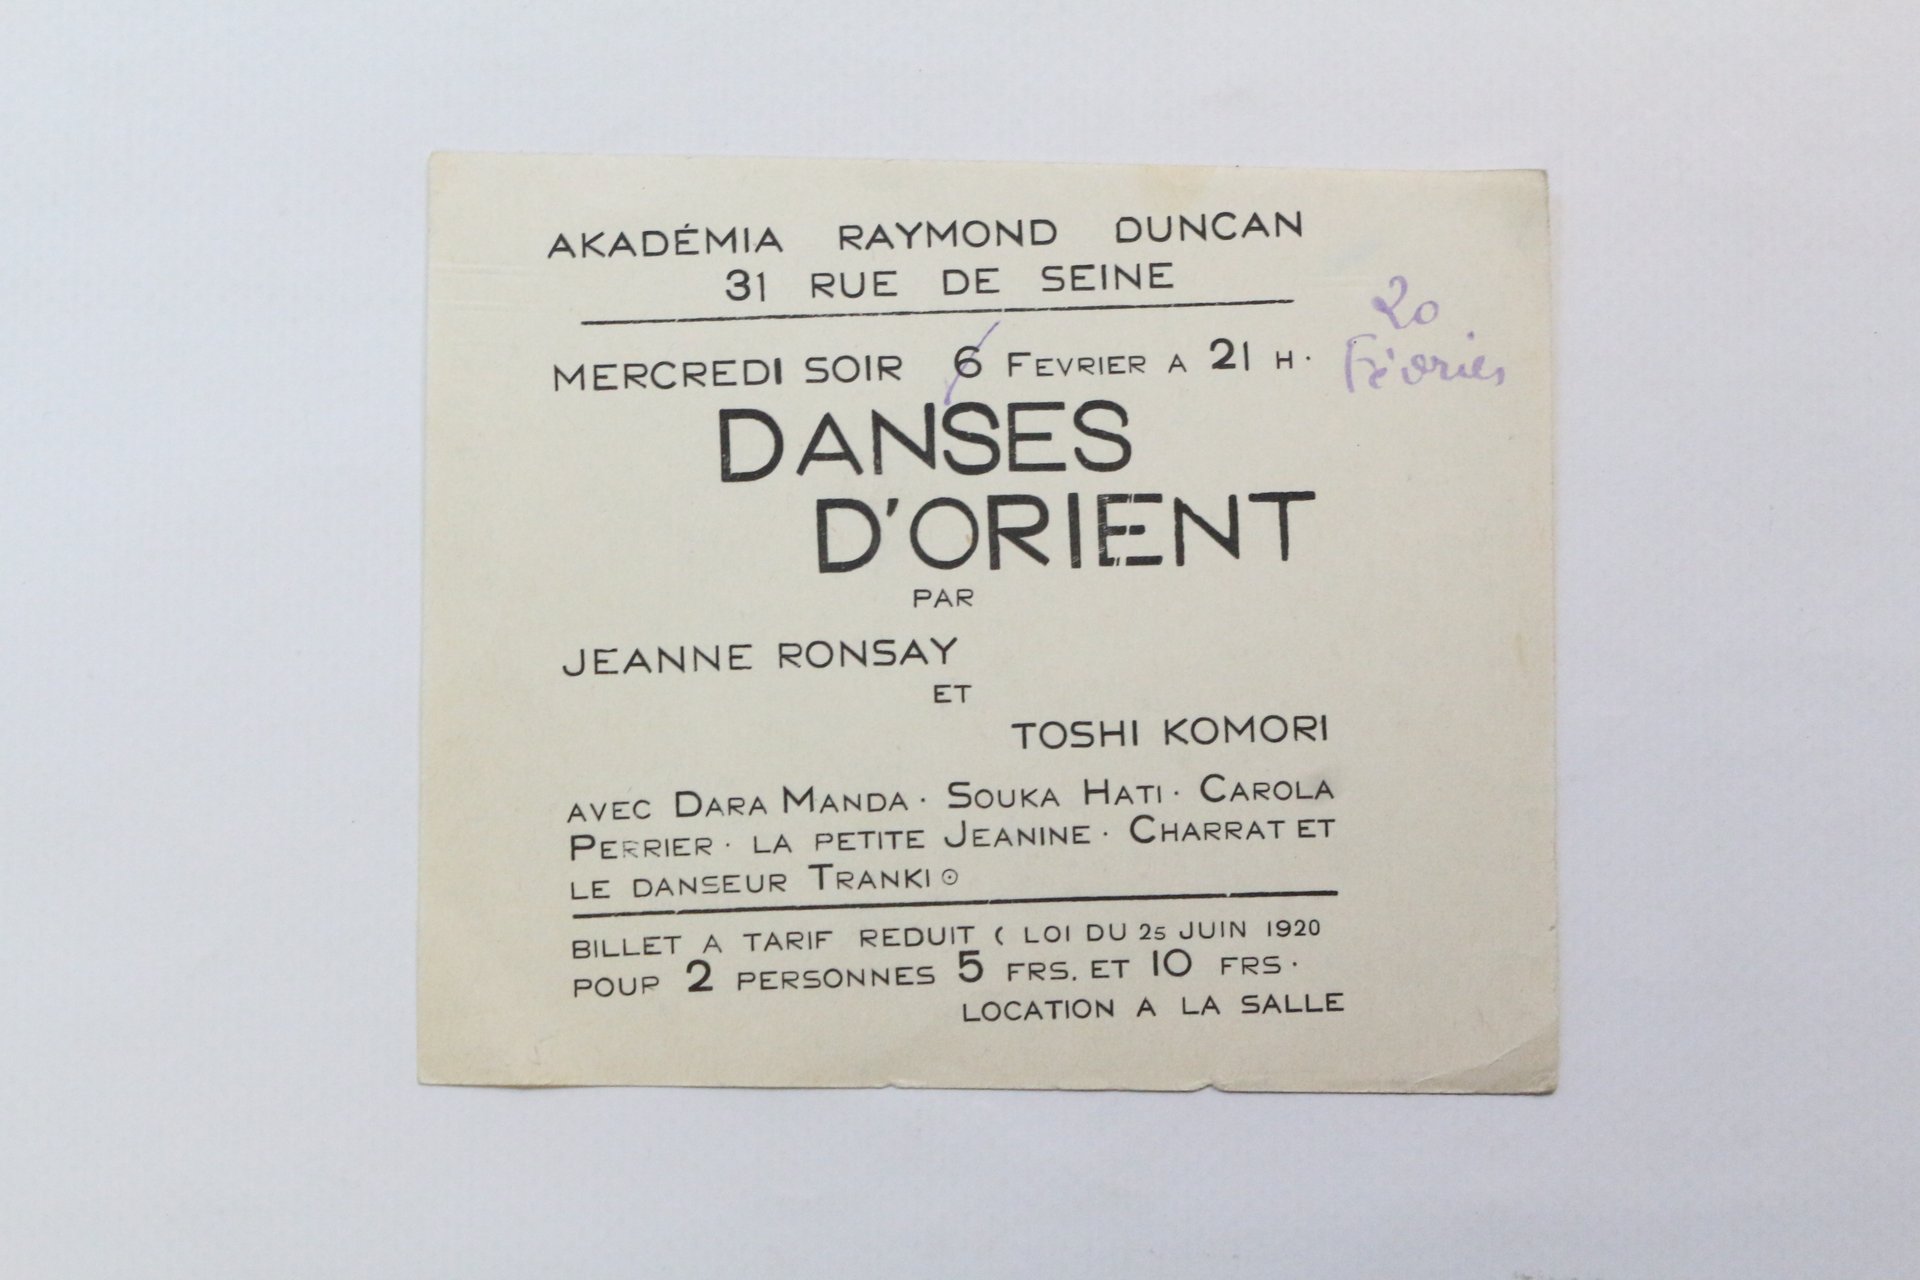 AKADÉMIA RAYMOND DUNCAN
31 RUE DE SEINE
MERCREDI SOIR 6 FEVRIER A 21 H.
20
Février
DANSES
D'ORIENT
PAR
JEANNE RONSAY
ET
TOSHI KOMORI
AVEC DARA MANDA · SOUKA HATI · CAROLA
PERRIER · LA PETITE JEANINE · CHARRAT ET
LE DANSEUR TRANKI ⊙
BILLET A TARIF REDUIT ( LOI DU 25 JUIN 1920
POUR 2 PERSONNES 5 FRS. ET 10 FRS ·
LOCATION A LA SALLE